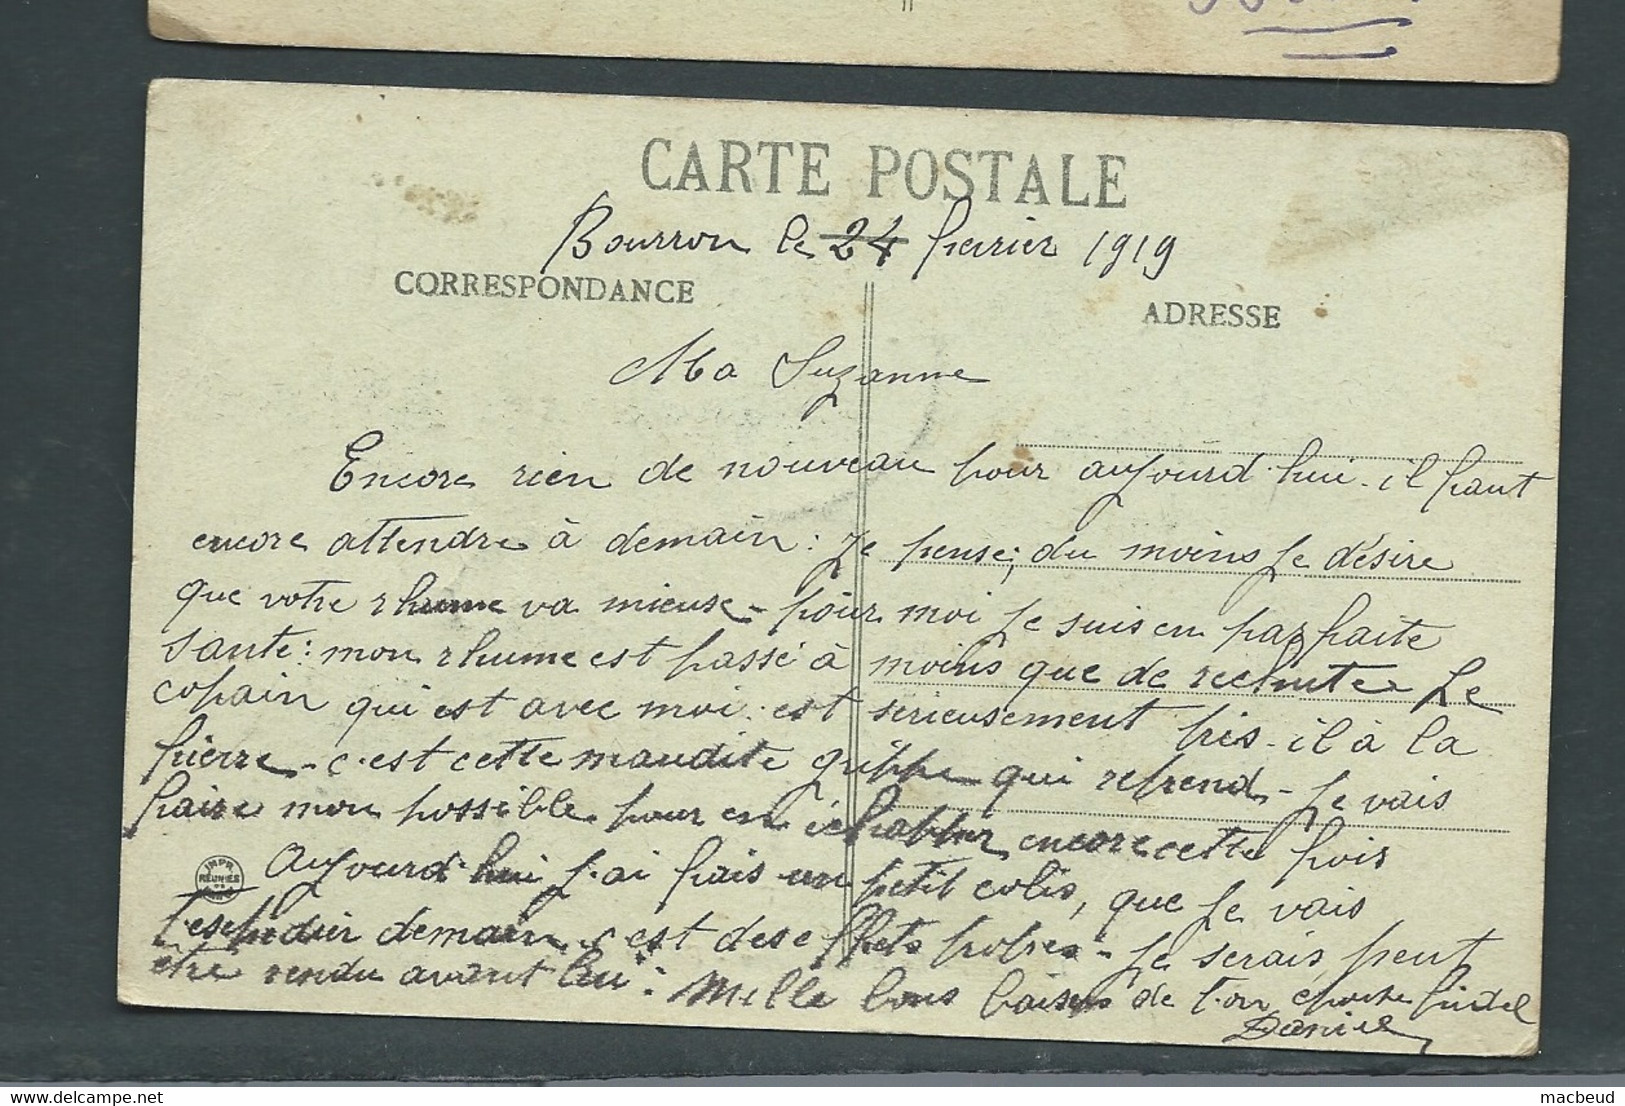 CARTE POSTALE
Bourron le 24 fevrier 1919
CORRESPONDANCE
ADRESSE
Ma Suzanne
Encore rien de nouveau pour aujourd'hui. il faut
encore attendre à demain: je pense; du moins je désire
que votre rhume va mieux - pour moi je suis en parfaite
santé: mon rhume est passé à moins que de rechute Le
copain qui est avec moi est serieusement pris - il à la
fierre - c'est cette maudite grippe qui reprend - je vais
faire mon possible pour en échapper encore cette fois
Aujourd'hui j'ai fais un petit colis, que je vais
t'eschedier demain c'est des effets propres - je serais peut
être rendu avant lui: Mille bons baisers de ton fidel
Daniel
IMPR
REUNIES
macbeud